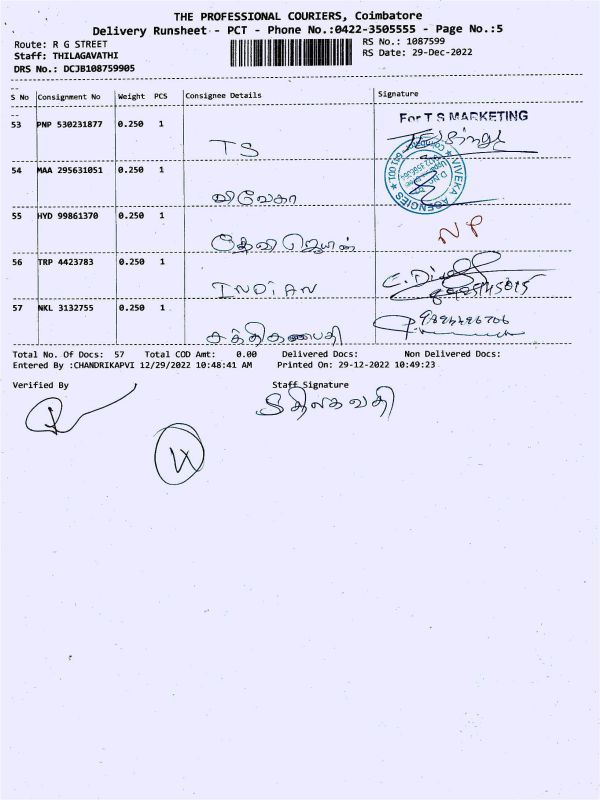 THE PROFESSIONAL COURIERS, Coimbatore
Delivery Runsheet - PCT - Phone No.:0422-3505555 - Page No.:5
Route: R G STREET
RS No.: 1087599
Staff: THILAGAVATHI
RS Date: 29-Dec-2022
DRS No.: DCJB108759905
S No Consignment No Weight PCS Consignee Details Signature
53 PNP 530231877 0.250 1
For T S MARKETING
TS
54 MAA 295631051 0.250 1
VIVEKA AGENCIES ★ Coimbatore 641 001 ★
விவேகா
55 HYD 99861370 0.250 1
NP
56 TRP 4423783 0.250 1
INDIAN
57 NKL 3132755 0.250 1
சக்திகணபதி
Total No. Of Docs: 57 Total COD Amt: 0.00 Delivered Docs: Non Delivered Docs:
Entered By :CHANDRIKAPVI 12/29/2022 10:48:41 AM Printed On: 29-12-2022 10:49:23
Verified By Staff Signature
திலகவதி